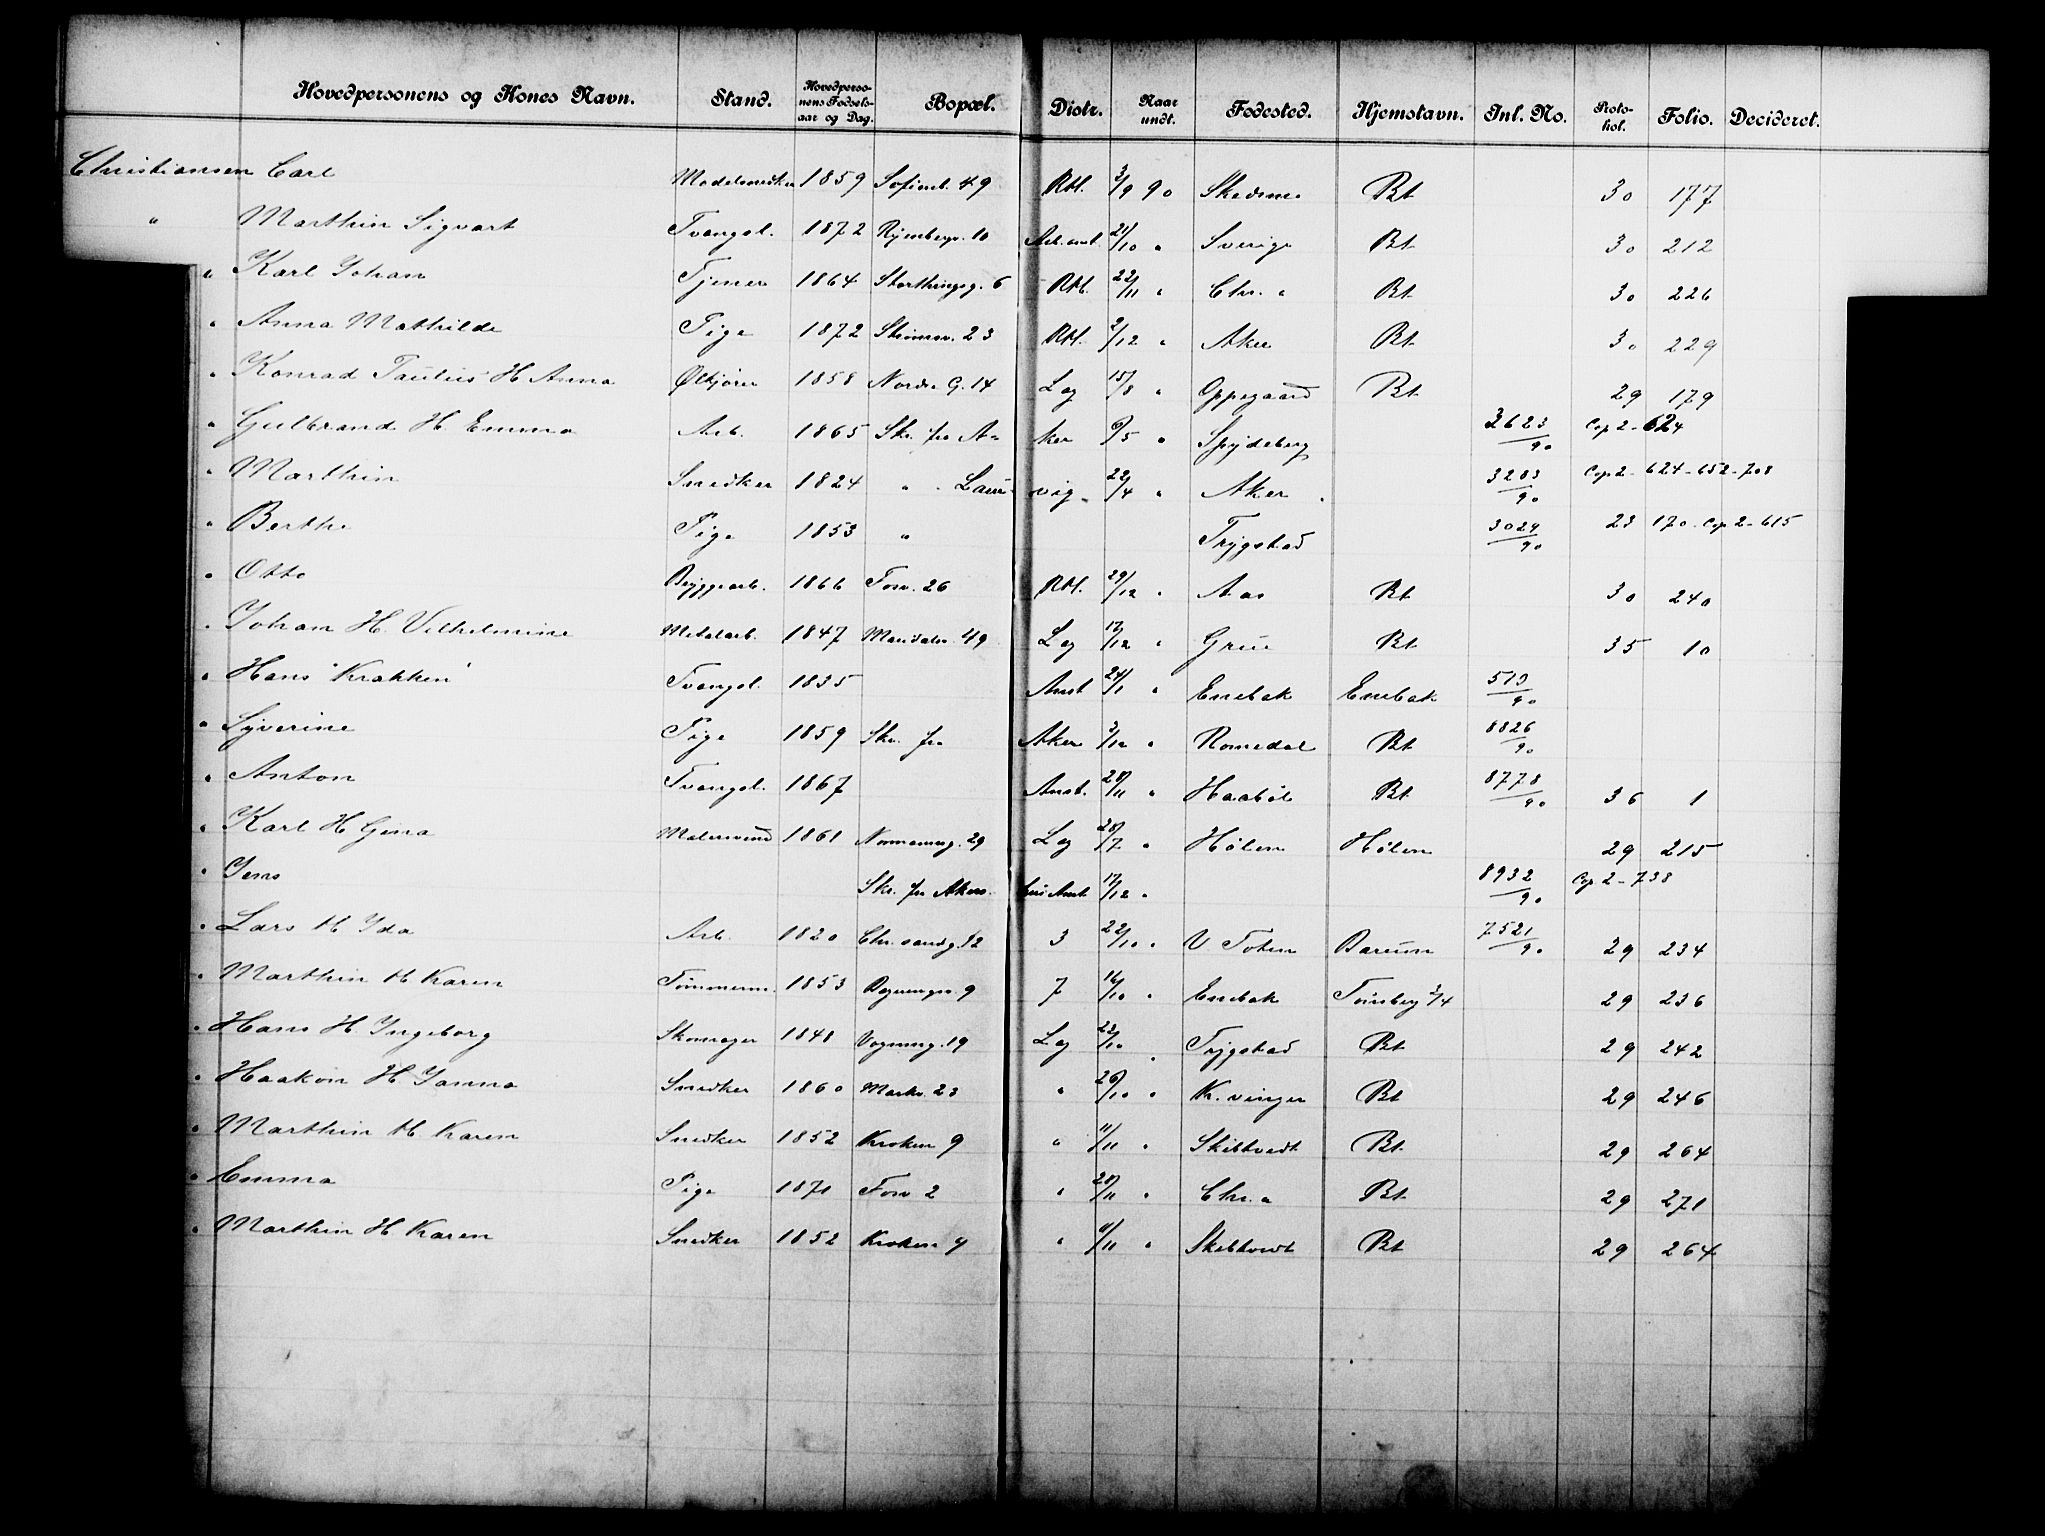 Hovedpersonens og Kones Navn. Stand. Hovedpersonens Fødselsaar og Dag. Bopæl. Distr. Naar undt. Fødested. Hjemstavn. Inl. No. Protokol. Folio. Decideret.
Christiansen Carl Modelsnedker 1859 Sofienb. 49 Rbl. 3/9 90 Skedsmo Bt 30 177
" Marthin Sigvart Tvangsl. 1872 Arb.anst. 21/10 " Sverige Bt 30 212
" Karl Johan Tjener 1864 Storthingsg. 6 Rbl. 22/11 " Chr.a Bt 30 226
" Anna Mathilde Pige 1872 23 Rbl. 2/12 " Aker Bt 30 229
" Konrad Paulus H Anna Ølkjører 1858 Nordre G. 14 Log 15/8 " Oppegaard Bt 29 179
" Gulbrand H. Emma Arb. 1865 Skr. fra Aker 6/5 " Spydeberg 3623/90 Cop 2 - 624
" Marthin Snedker 1824 " " Laurvig " 22/4 " Aker 3203/90 Cop 2 - 624 - 652 - 708
" Berthe Pige 1853 " Trygstad 3024/90 23 170 - Cop 2 - 615
" Otto Bryggearb. 1866 Fosv. 26 Rbl. 29/12 " Aas Bt 30 240
" Johan H. Vilhelmine Metalarb. 1847 Maridalsv. 49 Log 12/12 " Grue Bt 35 10
" Hans "Krakken" Tvangsl. 1835 Anst 24/1 " Enebak Enebak 510/90
" Syverine Pige 1859 Skr. fra Aker 3/12 " Romedal Bt 8826/90
" Anton Tvangsl. 1867 Anst. 28/11 " Haabøl Bt 8778/90 36 1
" Karl H Gina Malersvend 1861 Normannsg. 29 Log 28/7 " Hølen Hølen 29 215
" Jens Skr. fra Akers Anst 17/12 " 8932/90 Cop 2 - 738
" Lars H Ida Arb. 1820 Chr.sandg. 12 3 22/10 " V. Toten Bærum 7521/90 29 234
" Marthin H. Karen Tømmerm. 1853 9 7 16/10 " Enebak Tønsberg 3/4 29 236
" Hans H Ingeborg Skomager 1848 Vognmg. 19 Log 23/10 " Trygstad Bt 29 242
" Haakon H Janna Snedker 1860 Markv. 23 " 26/10 " K. vinger Bt 29 246
" Marthin H. Karen Snedker 1852 Kroken 9 " 11/11 " Skibtvedt Bt 29 264
" Emma Pige 1871 Fosv 2 " 20/11 " Chr.a Bt 29 271
" Marthin H Karen Snedker 1852 Kroken 9 " 11/11 " Skibtvedt Bt 29 264